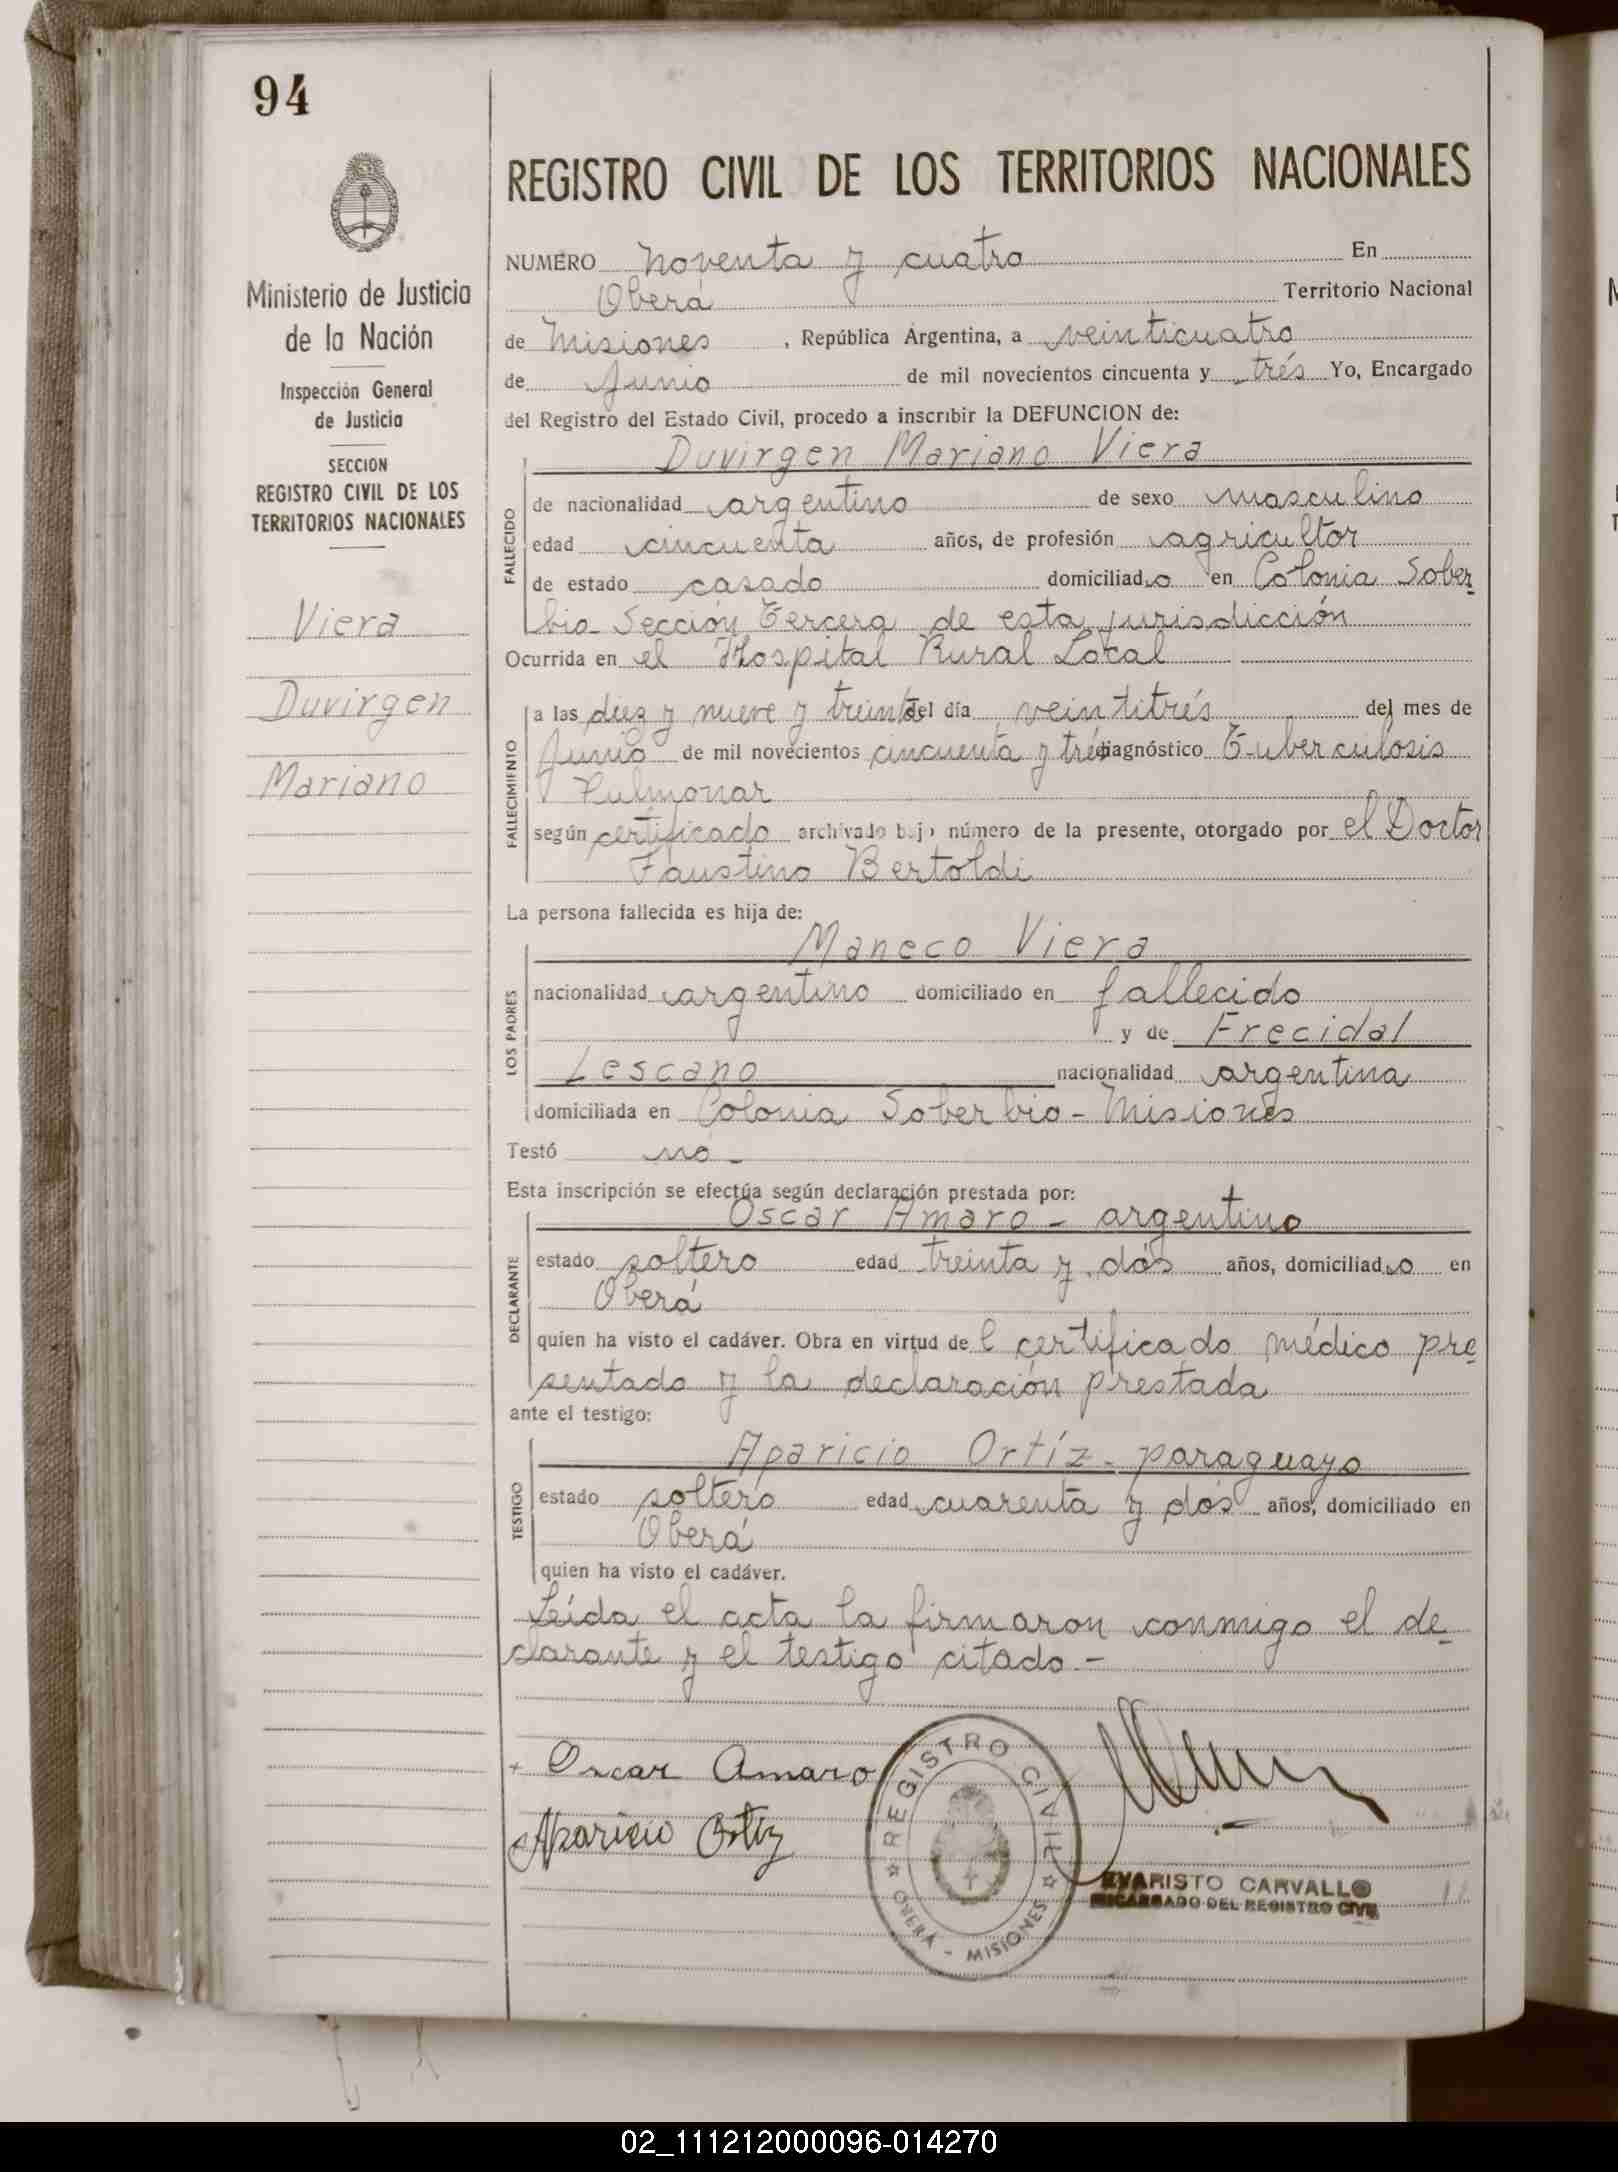 94
Ministerio de Justicia
de la Nación
Inspección General
de Justicia
SECCION
REGISTRO CIVIL DE LOS
TERRITORIOS NACIONALES
Viera
Duvirgen
Mariano
REGISTRO CIVIL DE LOS TERRITORIOS NACIONALES
NUMERO noventa y cuatro En
Oberá Territorio Nacional
de Misiones, República Argentina, a veinticuatro
de Junio de mil novecientos cincuenta y trés Yo, Encargado
del Registro del Estado Civil, procedo a inscribir la DEFUNCION de:
Duvirgen Mariano Viera
FALLECIDO
de nacionalidad argentino de sexo masculino
edad cincuenta años, de profesión agricultor
de estado casado domiciliado en Colonia Sober-
bio Sección Tercera de esta jurisdicción
Ocurrida en el Hospital Rural Local
FALLECIMIENTO
a las diez y nueve y treinta del día veintitrés del mes de
Junio de mil novecientos cincuenta y trés diagnóstico Tuberculosis
Pulmonar
según certificado archivado bajo número de la presente, otorgado por el Doctor
Faustino Bertoldi
La persona fallecida es hija de:
LOS PADRES
Maneco Viera
nacionalidad argentino domiciliado en fallecido
y de Frecidal
Lescano nacionalidad argentina
domiciliada en Colonia Soberbio - Misiones
Testó nó -
Esta inscripción se efectúa según declaración prestada por:
DECLARANTE
Oscar Amaro - argentino
estado soltero edad treinta y dós años, domiciliado en
Oberá
quien ha visto el cadáver. Obra en virtud del certificado médico pre-
sentado y la declaración prestada
ante el testigo:
TESTIGO
Aparicio Ortíz - paraguayo
estado soltero edad cuarenta y dós años, domiciliado en
Oberá
quien ha visto el cadáver.
Leída el acta la firmaron conmigo el de-
clarante y el testigo citado.-
+ Oscar Amaro
Aparicio Ortiz
REGISTRO CIVIL
OBERÁ - MISIONES
EVARISTO CARVALLO
ENCARGADO DEL REGISTRO CIVIL
02_111212000096-014270